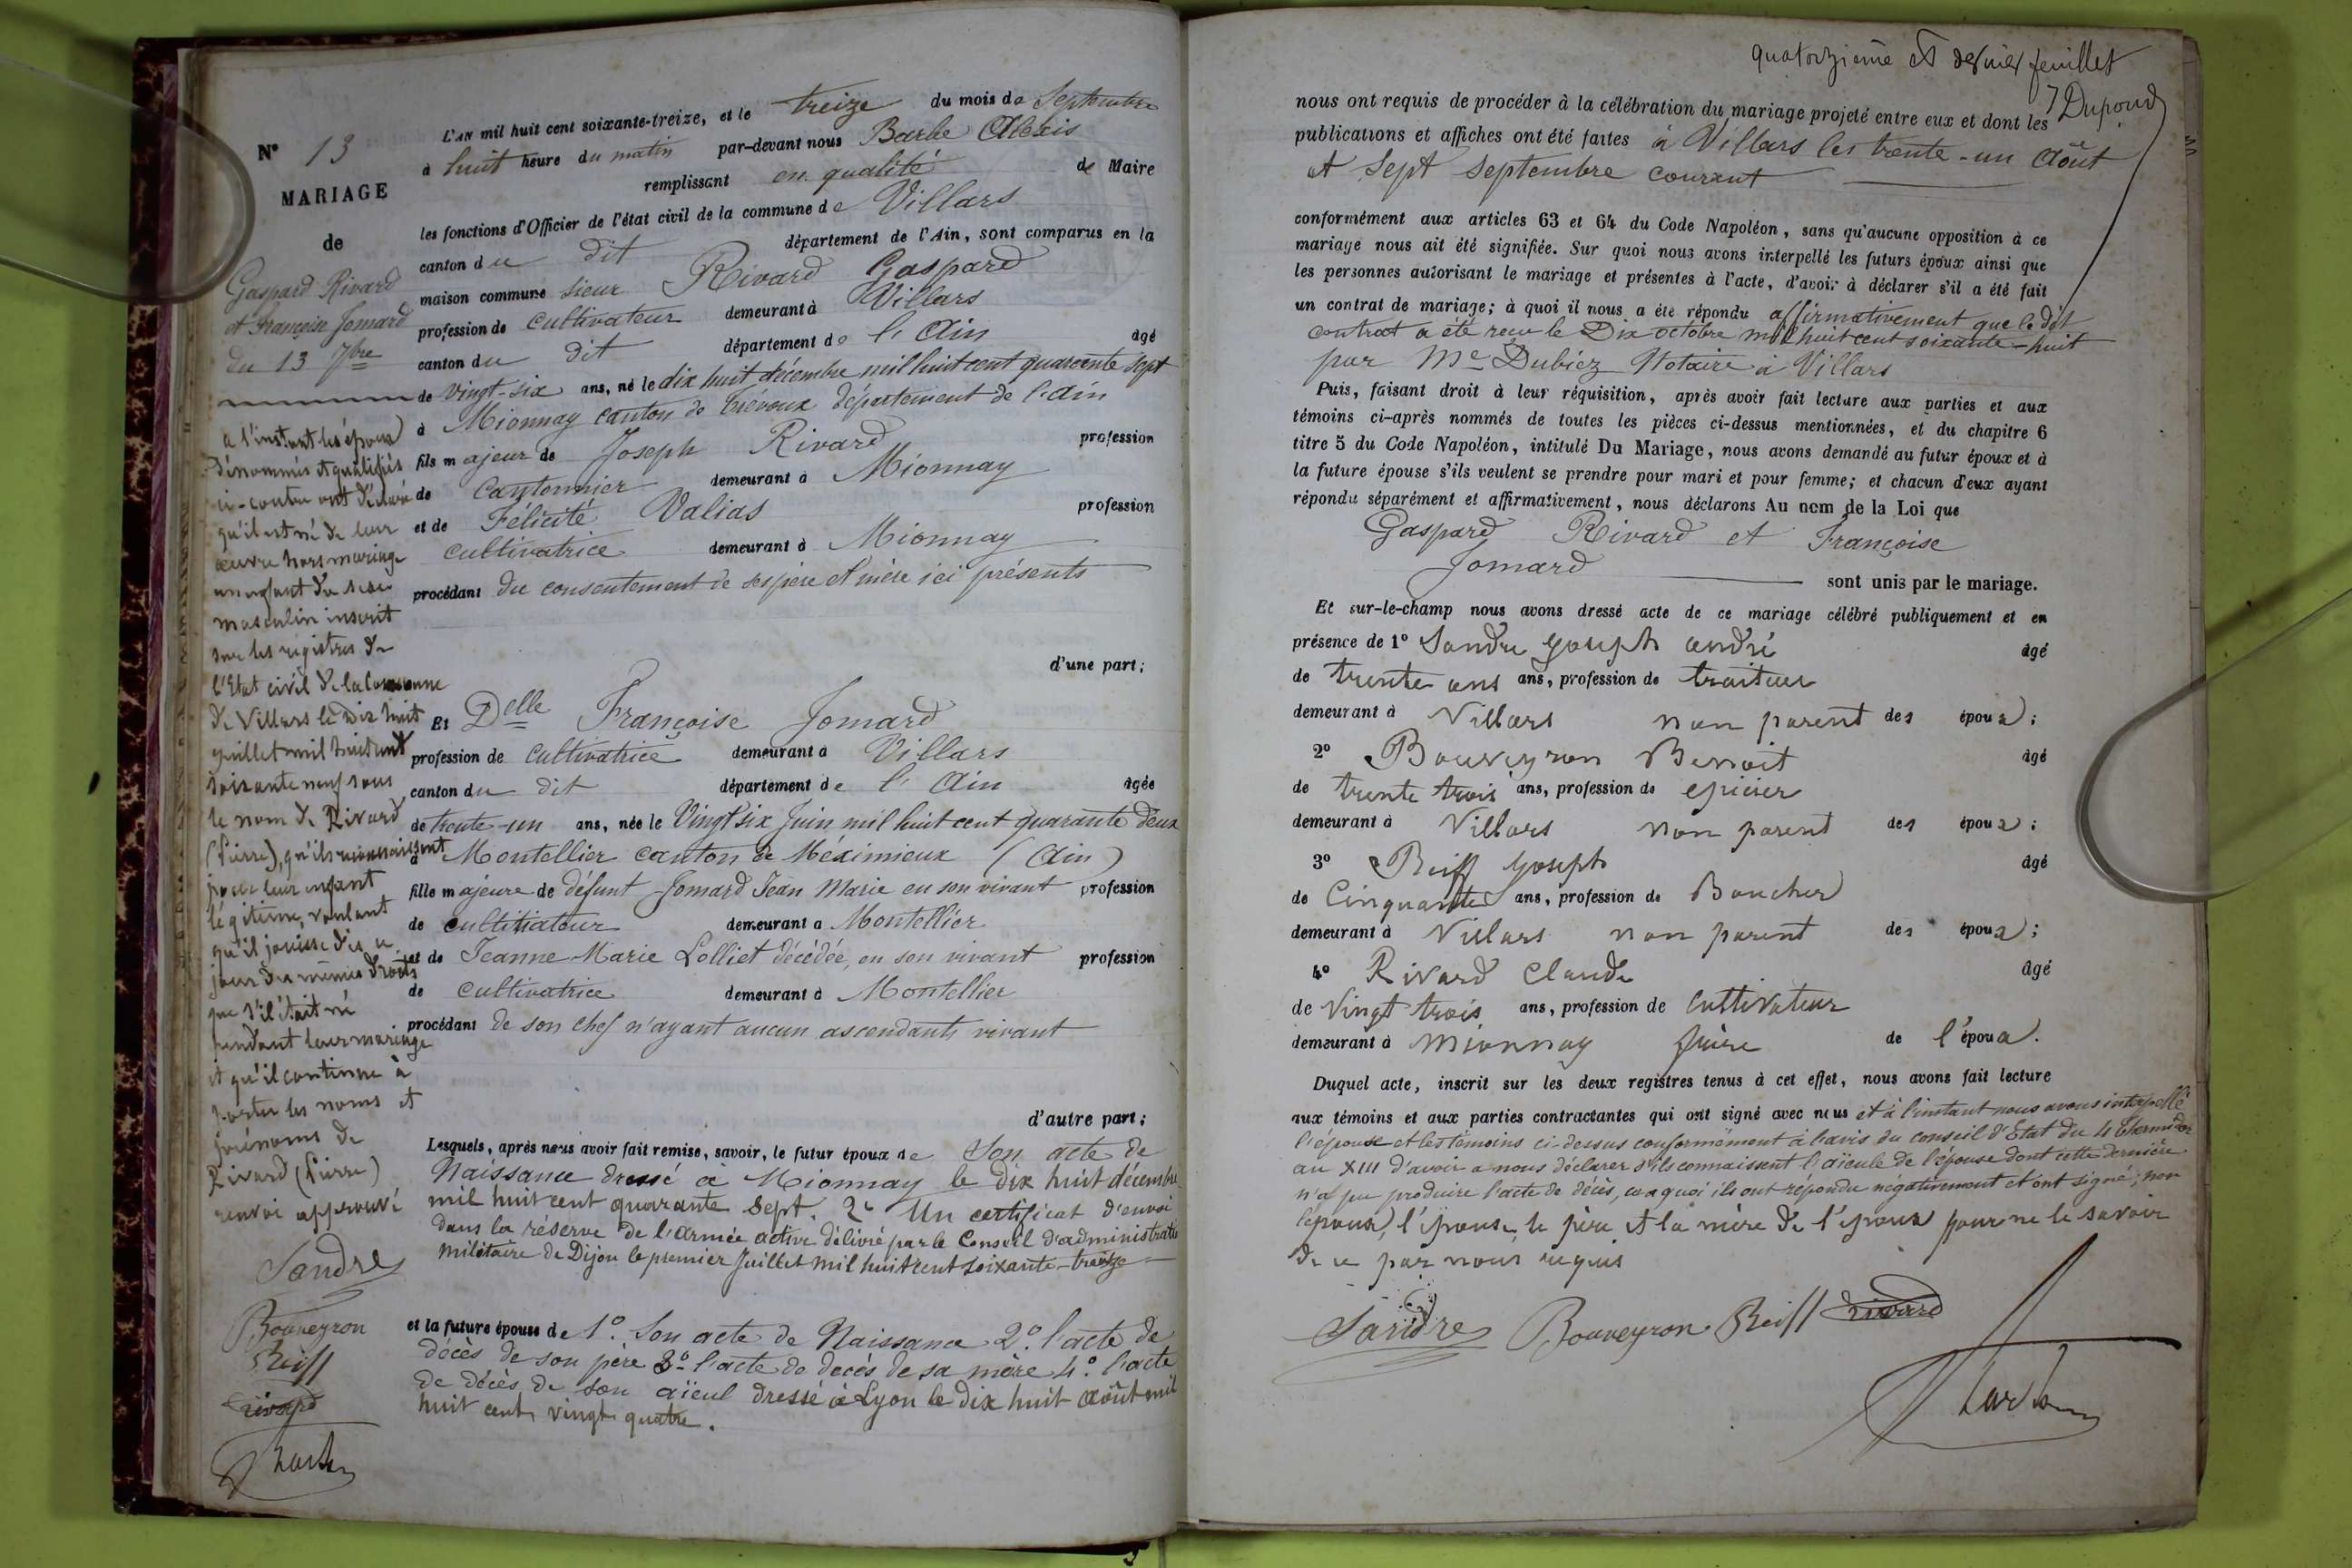 N° 13
MARIAGE
de
Gaspard Rivard
et Françoise Jomard
du 13 7bre
a l'instant les époux
dénommés et qualifiés
ci-contre ont déclaré
qu'il est né de leur
œuvre hors mariage
un enfant du sexe
masculin inscrit
sur les registres de
l'Etat civil de la Commune
de Villars le dix huit
juillet mil huit cent
soixante neuf sous
le nom de Rivard
(Pierre), qu'ils reconnaissent
pour leur enfant
légitime, voulant
qu'il jouisse dès ce
jour des mêmes droits
que s'il était né
pendant leur mariage
et qu'il continue à
porter les noms et
prénoms de
Rivard (Pierre)
renvoi approuvé
Sandre
Bouveyron
Reiff
rivard
L'AN mil huit cent soixante-treize, et le treize du mois de Septembre
à huit heure du matin par-devant nous Barbe Alexis
remplissant en qualité de Maire
les fonctions d'Officier de l'état civil de la commune de Villars
canton du dit département de l'Ain, sont comparus en la
maison commune sieur Rivard Gaspard
profession de cultivateur demeurant à Villars
canton du dit département de l'Ain âgé
de vingt-six ans, né le dix huit décembre mil huit cent quarante sept
à Mionnay canton de Trévoux département de l'Ain
fils majeur de Joseph Rivard profession
de Cantonnier demeurant à Mionnay
et de Félicité Valias profession
cultivatrice demeurant à Mionnay
procédant du consentement de ses père et mère ici présents
d'une part;
Et Delle Françoise Jomard
profession de cultivatrice demeurant à Villars
canton du dit département de l'Ain âgée
de trente-un ans, née le Vingt six Juin mil huit cent quarante deux
à Montellier canton de Méximieux (Ain)
fille majeure de défunt Jomard Jean Marie en son vivant profession
de cultivateur demeurant à Montellier
et de Jeanne Marie Lolliet décédée, en son vivant profession
de cultivatrice demeurant à Montellier
procédant de son chef n'ayant aucun ascendants vivant
d'autre part;
Lesquels, après nous avoir fait remise, savoir, le futur époux de Son acte de
Naissance dressé à Mionnay le dix huit décembre
mil huit cent quarante sept. 2° Un certificat d'envoi
dans la réserve de l'armée active délivré par le Conseil d'administration
militaire de Dijon le premier Juillet mil huit cent soixante-treize
et la future épouse de 1°. Son acte de Naissance 2°. l'acte de
décès de son père 3°. l'acte de décès de sa mère 4°. l'acte
de décès de son aïeul dressé à Lyon le dix huit août mil
huit cent vingt quatre.
quatorzième et dernier feuillet
Dupond
nous ont requis de procéder à la célébration du mariage projeté entre eux et dont les
publications et affiches ont été faites à Villars les trente-un Août
et Sept Septembre courant
conformément aux articles 63 et 64 du Code Napoléon, sans qu'aucune opposition à ce
mariage nous ait été signifiée. Sur quoi nous avons interpellé les futurs époux ainsi que
les personnes autorisant le mariage et présentes à l'acte, d'avoir à déclarer s'il a été fait
un contrat de mariage; à quoi il nous a été répondu affirmativement que le dit
contrat a été reçu le Dix octobre mil huit cent soixante-huit
par Me Dubiez Notaire à Villars
Puis, faisant droit à leur réquisition, après avoir fait lecture aux parties et aux
témoins ci-après nommés de toutes les pièces ci-dessus mentionnées, et du chapitre 6
titre 5 du Code Napoléon, intitulé Du Mariage, nous avons demandé au futur époux et à
la future épouse s'ils veulent se prendre pour mari et pour femme; et chacun d'eux ayant
répondu séparément et affirmativement, nous déclarons Au nom de la Loi que
Gaspard Rivard et Françoise
Jomard sont unis par le mariage.
Et sur-le-champ nous avons dressé acte de ce mariage célébré publiquement et en
présence de 1° Sandre Joseph andré âgé
de trente ans ans, profession de traiteur
demeurant à Villars non parent des époux;
2° Bouveyron Benoit âgé
de trente trois ans, profession de epicier
demeurant à Villars non parent des époux;
3° Reiff Joseph âgé
de Cinquante ans, profession de Boucher
demeurant à Villars non parent des époux;
4° Rivard Claude âgé
de Vingt trois ans, profession de Cultivateur
demeurant à Mionnay frère de l'époux.
Duquel acte, inscrit sur les deux registres tenus à cet effet, nous avons fait lecture
aux témoins et aux parties contractantes qui ont signé avec nous et à l'instant nous avons interpellé
l'épouse et les témoins ci-dessus conformément à l'avis du conseil d'Etat du 4 thermidor
an XIII d'avoir a nous déclarer s'ils connaissent l'aïeule de l'épouse dont cette dernière
n'a pu produire l'acte de décès, ce a quoi ils ont répondu négativement et ont signé; non
l'époux, l'épouse, le père et la mère de l'époux pour ne le savoir
de ce par nous requis
Sandre Bouveyron Reiff rivard